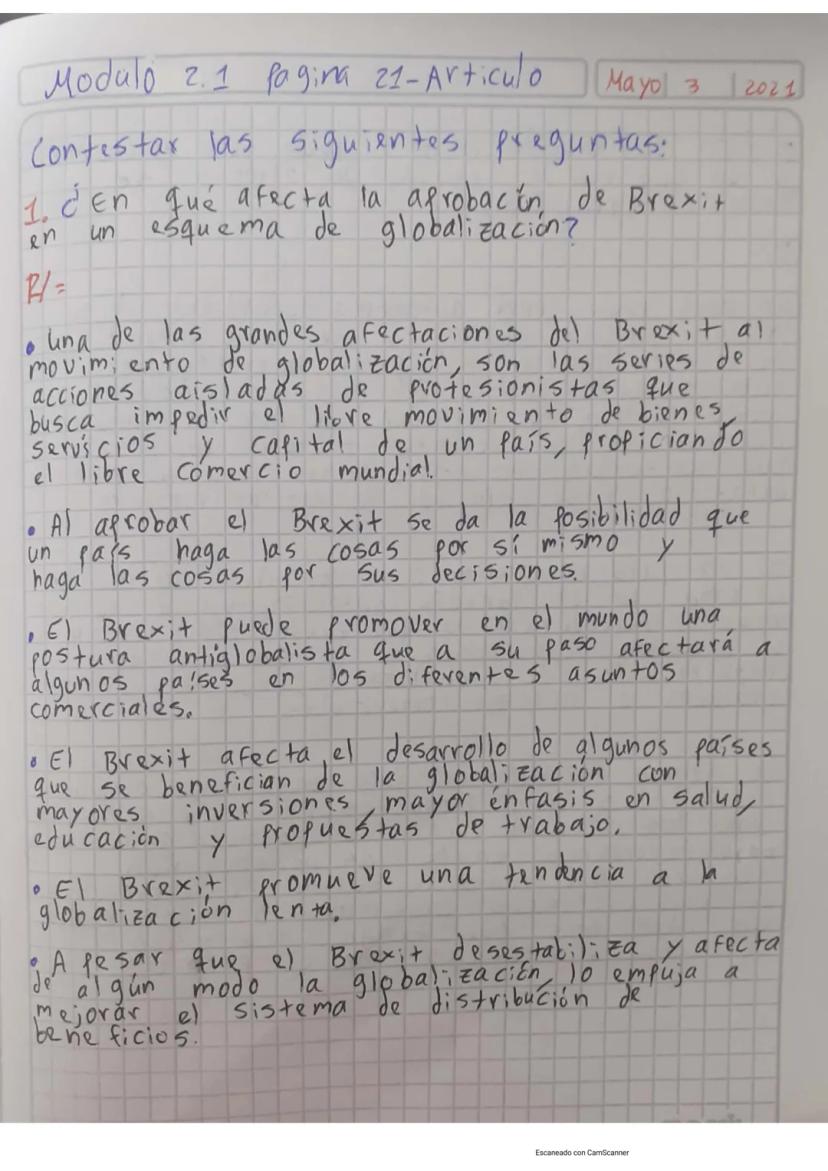 Modulo 2.1 Pagina 21-Articulo Mayo 3 2021
Contestar las siguientes preguntas:
1. ¿En qué afecta la aprobación de Brexit
en un esquema de globalización?
R/=
• Una de las grandes afectaciones del Brexit al
movimiento de globalización, son las series de
acciones aisladas de protesionistas que
busca impedir el libre movimiento de bienes,
servicios y capital de un país, propiciando
el libre comercio mundial.
• Al aprobar el Brexit se da la posibilidad que
un país haga las cosas por sí mismo y
haga las cosas por sus decisiones.
• El Brexit puede promover en el mundo una
postura antiglobalista que a su paso afectará a
algunos países en los diferentes asuntos
comerciales.
• El Brexit afecta el desarrollo de algunos países
que se benefician de la globalización con
mayores inversiones, mayor énfasis en salud,
educación y propuestas de trabajo.
• El Brexit promueve una tendencia a la
globalización lenta.
• A pesar que el Brexit desestabiliza y afecta
de algún modo la globalización, lo empuja a
mejorar el sistema de distribución de
beneficios.
Escaneado con CamScanner